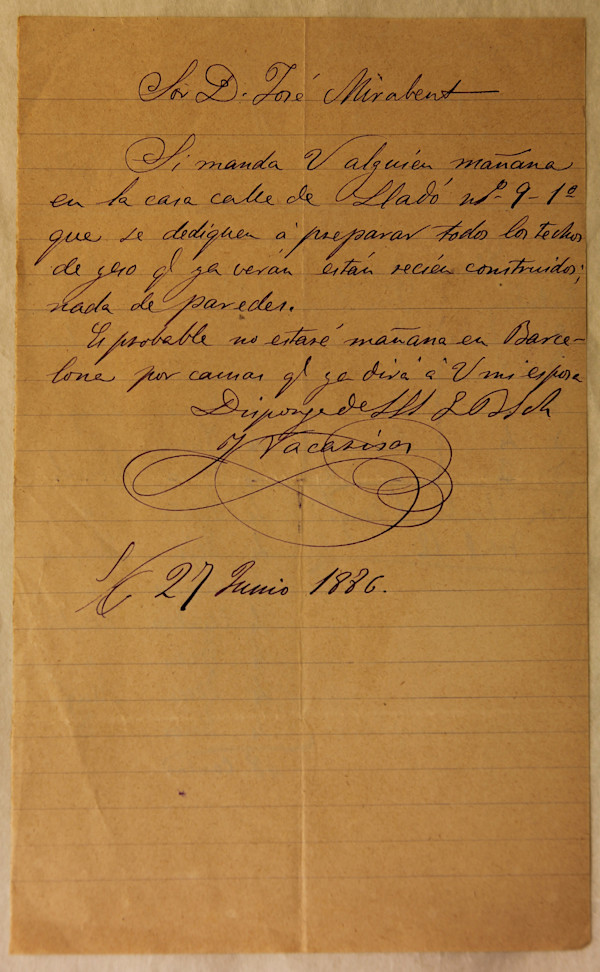 Sor D. José Mirabent
Si manda V alguien mañana
en la casa calle de Lladó no. 9-1o
que se dediquen á preparar todos los techos
de yeso q ya verán están recién construidos;
nada de paredes.
Es probable no estaré mañana en Barce-
lona por causas q ya dirá á V mi esposa
Disponga de
J Vacarisas
27 Junio 1886.